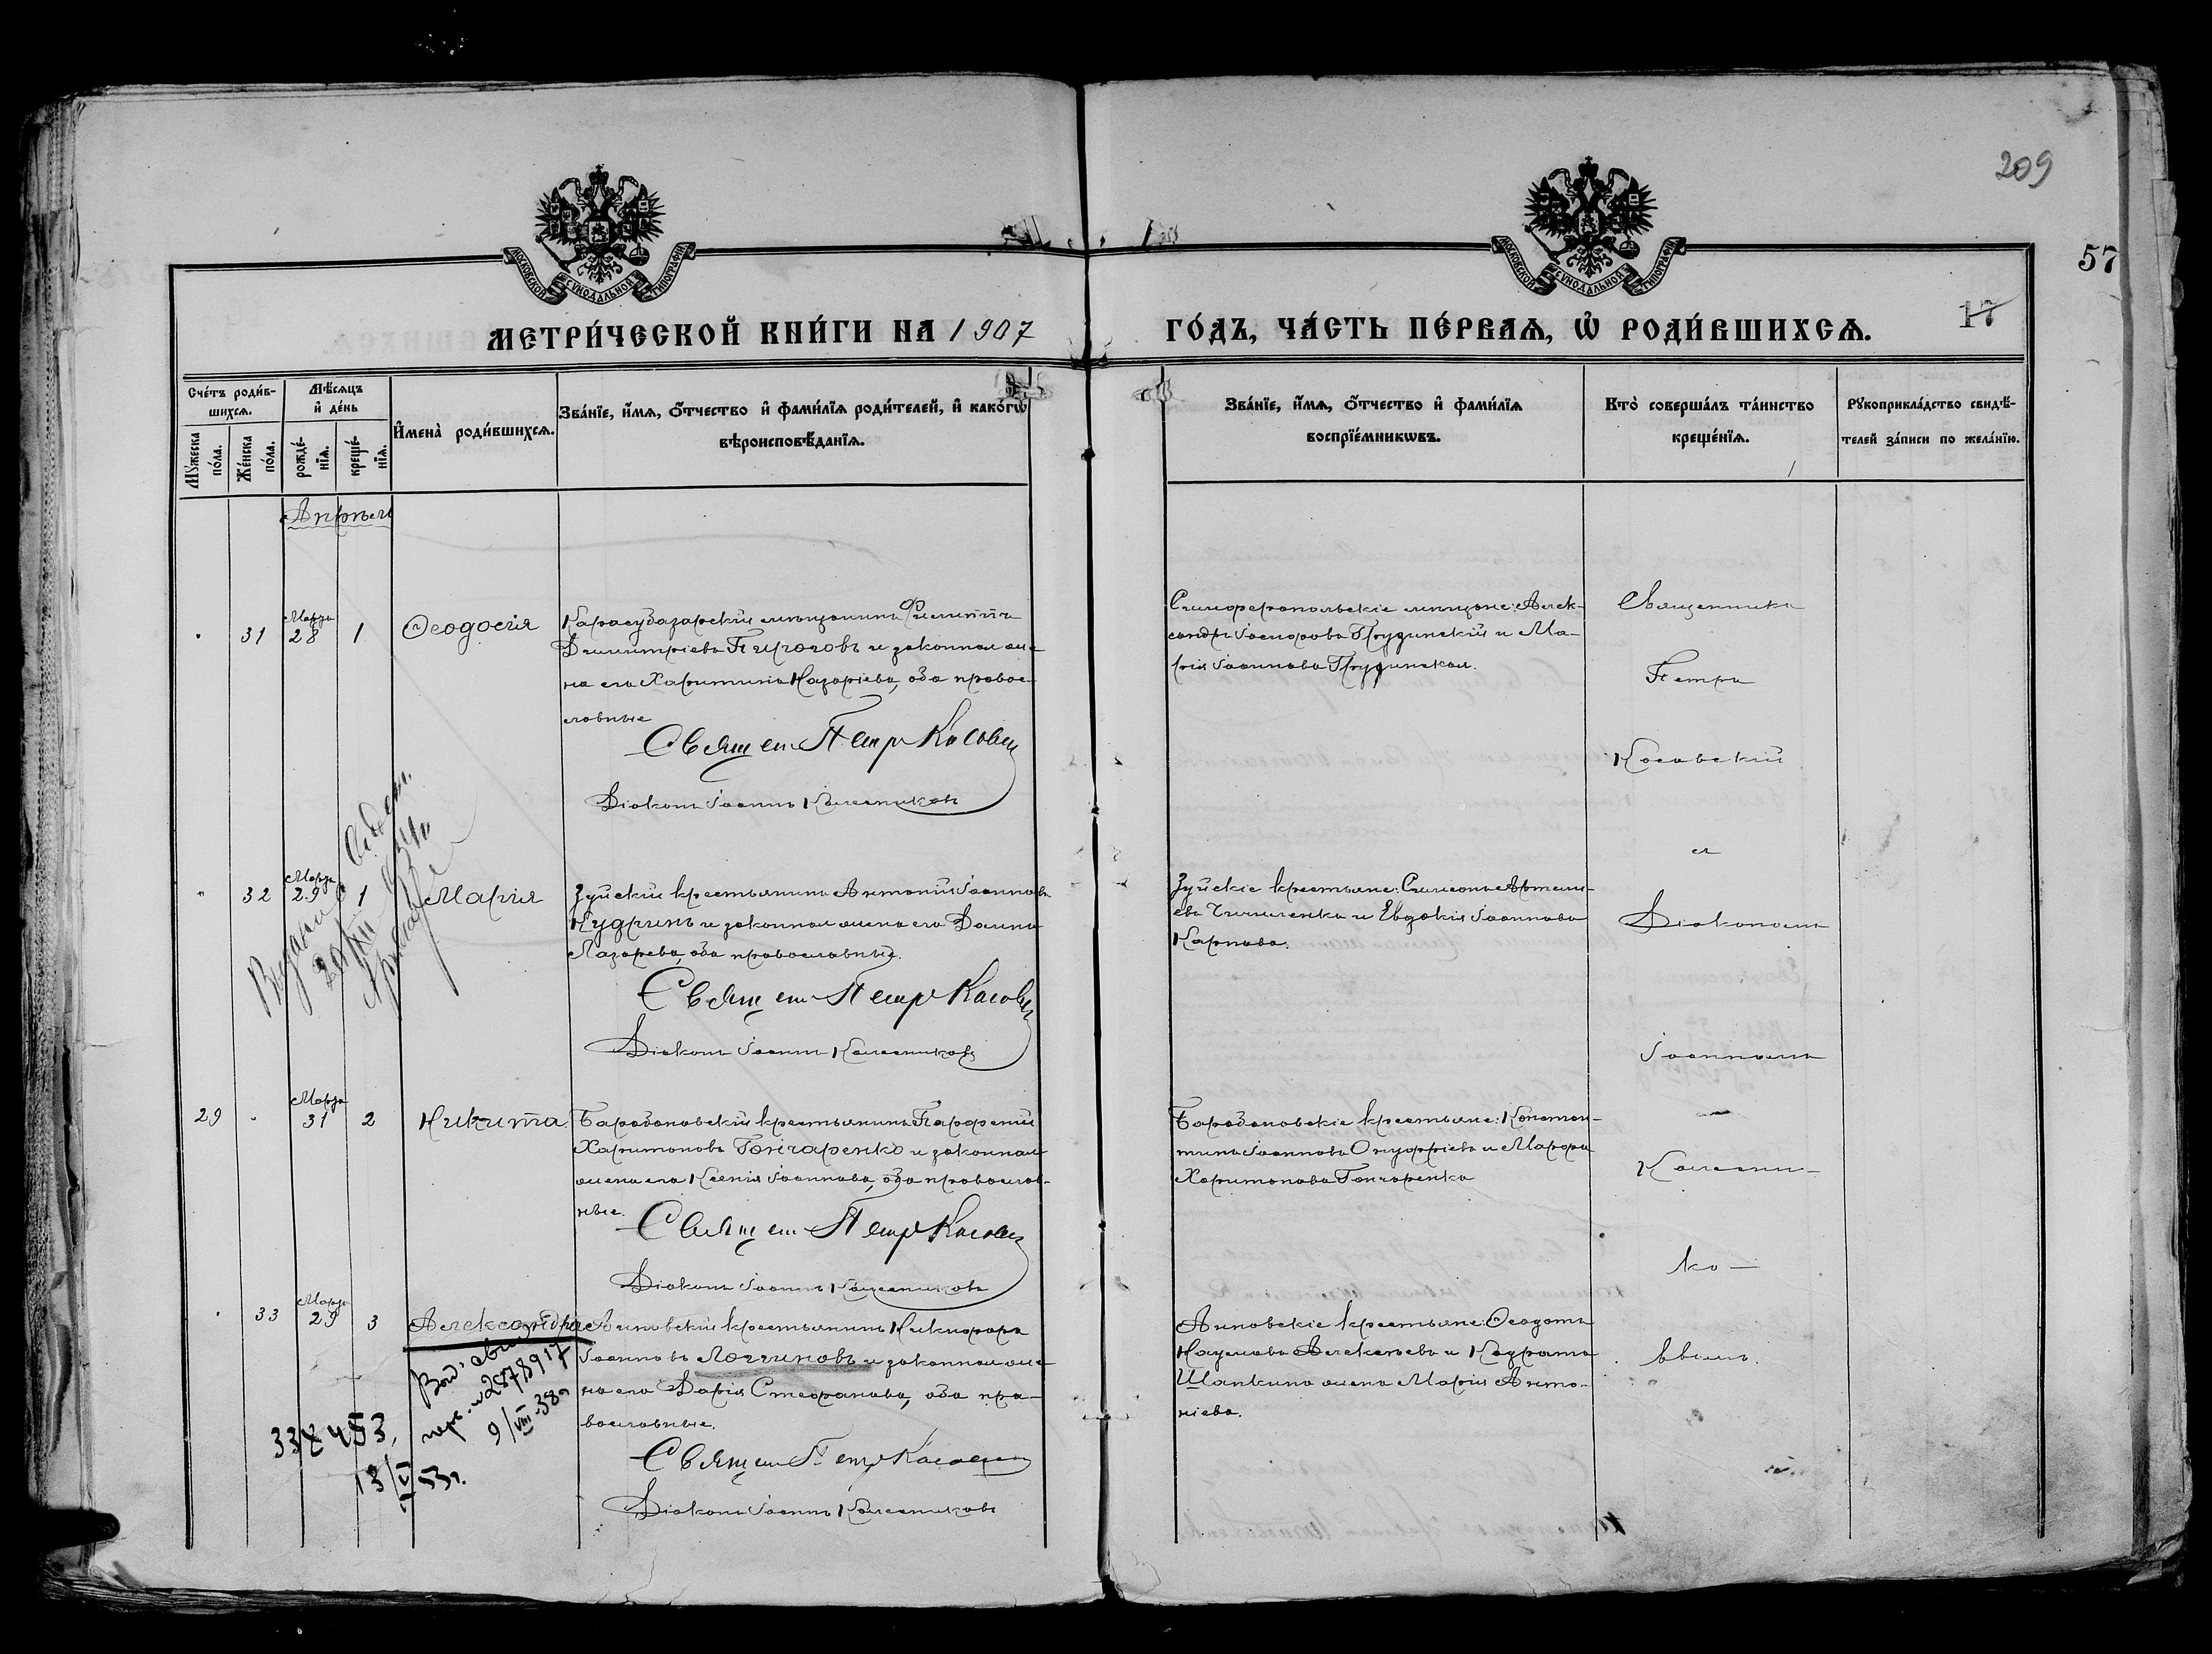 209
57
17
МОСКОВСКОЙ СѴНОДАЛЬНОЙ ТИПОГРАФІИ
МОСКОВСКОЙ СѴНОДАЛЬНОЙ ТИПОГРАФІИ
МЕТРИ́ЧЕСКОЙ КНИ́ГИ НА 1907
ГО́ДЪ, ЧА́СТЬ ПЕ́РВАѦ, Ѡ҆ РОДИ́ВШИХСѦ.
Сче́тъ роди́в-
шихсѧ.
Мꙋ́жеска
по́ла.
Же́нска
по́ла.
Мѣ́сѧцъ
и҆ де́нь
рожде́-
нїѧ.
креще́-
нїѧ.
И҆мена̀ роди́вшихсѧ.
Зва́нїе, и҆́мѧ, ѻ҆́тчество и҆ фами́лїѧ роди́телей, и҆ како́гѡ
вѣроисповѣ́данїѧ.
Зва́нїе, и҆́мѧ, ѻ҆́тчество и҆ фами́лїѧ
воспрїе́мникѡвъ.
Кто̀ соверша́лъ та́инство
креще́нїѧ.
Рꙋкоприкла́дство свидѣ́-
телей за́писи по жела́нїю.
Апрѣль
31
Марта
28
1
Ѳеодосія
Карасубазарскій мѣщанинъ Филиппъ
Димитріевъ Пироговъ и законная же-
на его Харитина Назаріева, оба право-
славные
Священ Петръ Касовск
Діаконъ Іоаннъ Колесниковъ
Симферопольскіе мѣщане: Алек-
сандръ Іосифовъ Прудинскій и Ма-
рія Іоаннова Прудинская.
Священникъ
Петръ
Косовскій
съ
Діакономъ
Іоанномъ
Колесни-
ко-
вымъ.
32
Марта
29
1
Марія
Зуйскій крестьянинъ Антоній Іоанновъ
Кудринъ и законная жена его Домна
Лазарева, оба православные.
Священ Петръ Касовск
Діаконъ Іоаннъ Колесниковъ
Зуйскіе крестьяне: Симеонъ Артемі-
евъ Чичиленко и Евдокія Іоаннова
Карпова.
29
Марта
31
2
Никита
Барабановскій крестьянинъ Парфеній
Харитоновъ Гончаренко и законная
жена его Ксенія Іоаннова, оба православ-
ные.
Священ Петръ Касовск
Діаконъ Іоаннъ Колесниковъ
Барабановскіе крестьяне: Констан-
тинъ Іоанновъ Онуфріевъ и Марфа
Харитонова Гончаренко
33
Марта
29
3
Александра
Аиповскій крестьянинъ Никифоръ
Іоанновъ Логгиновъ и законная же-
на его Дарія Стефанова, оба пра-
вославные.
Священ Петръ Касовск
Діаконъ Іоаннъ Колесниковъ
Аиповскіе крестьяне: Ѳеодотъ
Наумовъ Алексѣевъ и Кодрата
Шапкина жена Марія Анто-
ніева.
Выдано
9/VIII-38г
13/VI 53г.